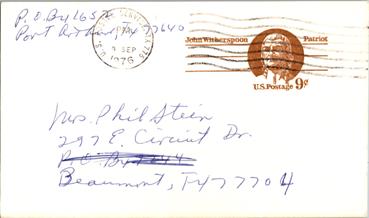 P.O. Box 1657
Port Arthur, Tx 77640
U.S. POSTAL SERVICE TX 775
PM
9 SEP
1976
John Witherspoon Patriot
U.S. Postage 9¢
Mrs. Phil Stein
297 E. Circuit Dr.
Beaumont, Tx 77704